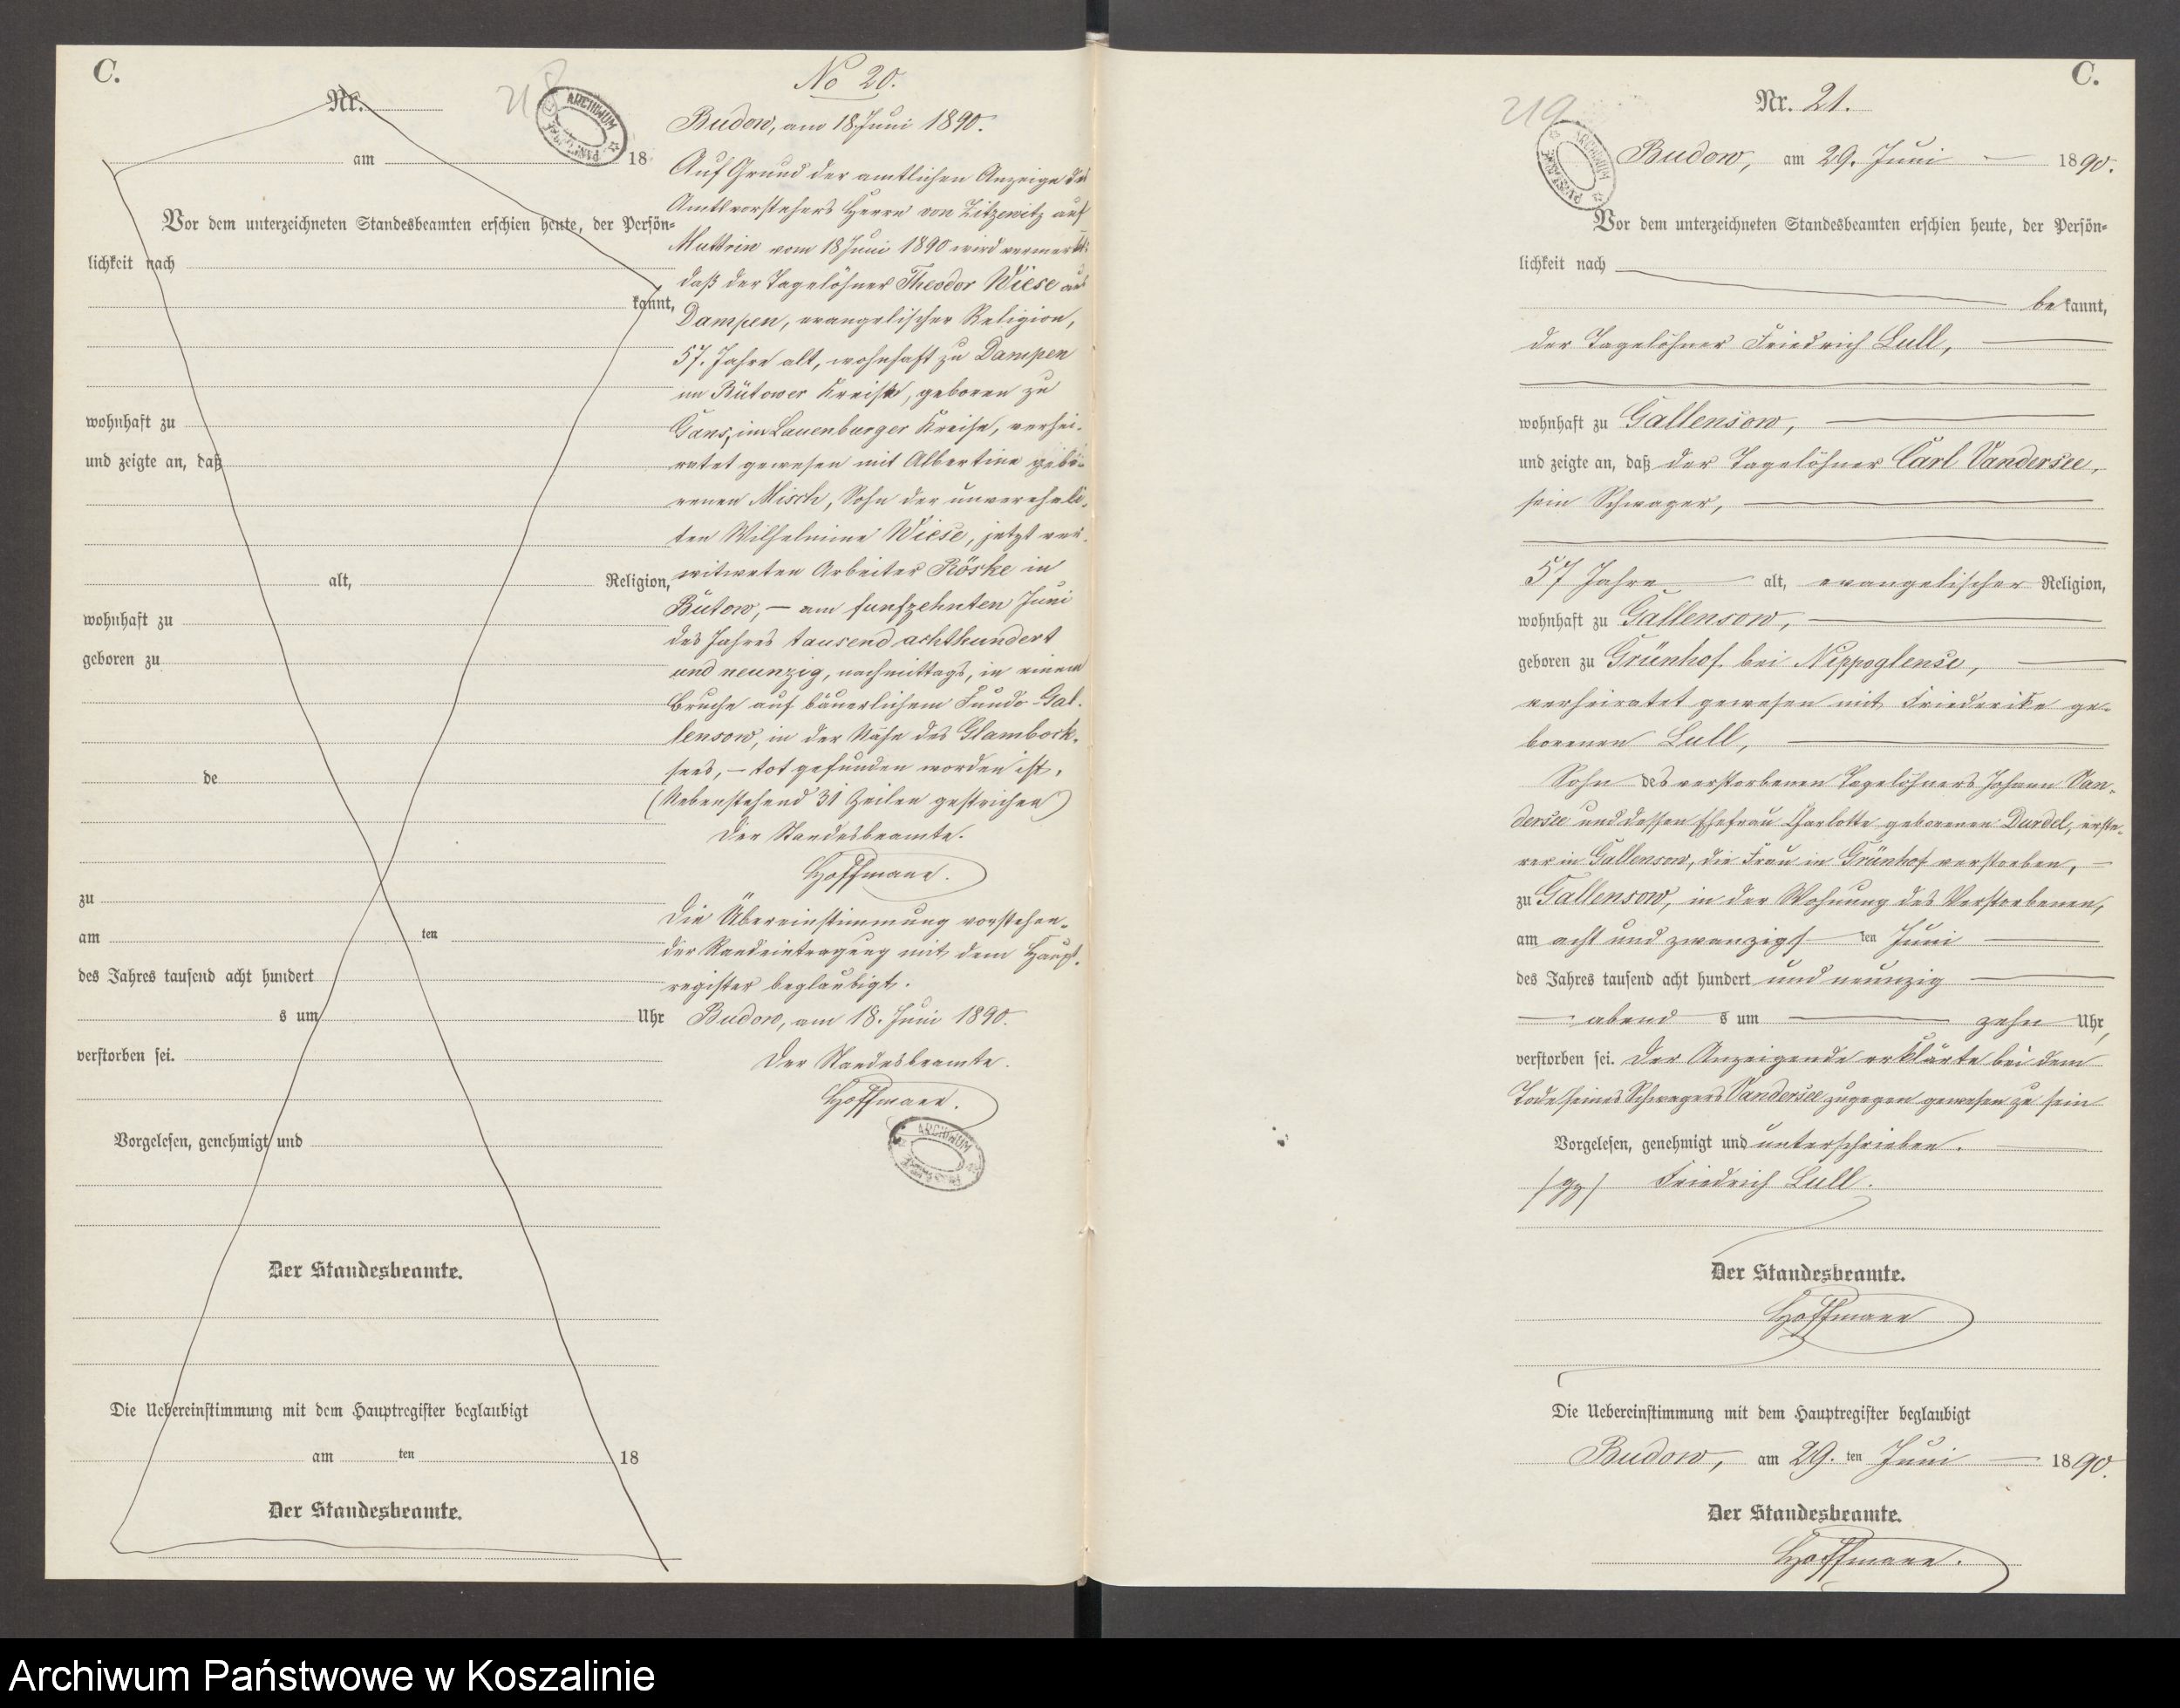 C.
Nr.
218
No 20.
am 18
Budow, am 18 Juni 1890.
Auf Grund der amtlichen Anzeige des
Amtsvorstehers Herrn von Zitzewitz auf
Muttrin vom 18 Juni 1890 wird vermerkt:
daß der Tagelöhner Theodor Wiese aus
Dampen, evangelischer Religion,
57. Jahre alt, wohnhaft zu Dampen
im Bütower Kreise, geboren zu
Gans, im Lauenburger Kreise, verhei-
ratet gewesen mit Albertine gebo-
renen Misch, Sohn der unverehelich-
ten Wilhelmine Wiese, jetzt ver-
witweten Arbeiter Röske in
Bütow, – am funfzehnten Juni
des Jahres tausend achthundert
und neunzig, nachmittags, in einem
Bruche auf bäuerlichem Fundo Gal-
lensow, in der Nähe des Glambock-
sees, – tot gefunden worden ist.
(Nebenstehend 31 Zeilen gestrichen)
Der Standesbeamte.
Hoffmann.
Die Übereinstimmung vorstehen-
der Randeintragung mit dem Haupt-
register beglaubigt.
Budow, am 18. Juni 1890.
Der Standesbeamte.
Hoffmann.
Vor dem unterzeichneten Standesbeamten erschien heute, der Persön-
lichkeit nach
kannt,
wohnhaft zu
und zeigte an, daß
alt, Religion,
wohnhaft zu
geboren zu
de
zu
am ten
des Jahres tausend acht hundert
s um Uhr
verstorben sei.
Vorgelesen, genehmigt und
Der Standesbeamte.
Die Uebereinstimmung mit dem Hauptregister beglaubigt
am ten 18
Der Standesbeamte.
C.
219
Nr. 21.
Budow, am 29. Juni 1890.
Vor dem unterzeichneten Standesbeamten erschien heute, der Persön-
lichkeit nach
bekannt,
der Tagelöhner Friedrich Lull,
wohnhaft zu Gallensow,
und zeigte an, daß der Tagelöhner Carl Vandersee,
sein Schwager,
57 Jahre alt, evangelischer Religion,
wohnhaft zu Gallensow,
geboren zu Grünhof bei Nippoglense,
verheiratet gewesen mit Friederike ge-
borenen Lull,
Sohn des verstorbenen Tagelöhners Johann Van-
dersee und dessen Ehefrau Charlotte geborenen Durdel, erste-
rer in Gallensow, die Frau in Grünhof verstorben,
zu Gallensow, in der Wohnung des Verstorbenen,
am acht und zwanzigsten Juni
des Jahres tausend acht hundert und neunzig
abends um zehn Uhr,
verstorben sei. Der Anzeigende erklärte bei dem
Tode seines Schwagers Vandersee zugegen gewesen zu sein
Vorgelesen, genehmigt und unterschrieben.
(gz) Friedrich Lull.
Der Standesbeamte.
Hoffmann
Die Uebereinstimmung mit dem Hauptregister beglaubigt
Budow, am 29. ten Juni 1890.
Der Standesbeamte.
Hoffmann.
Archiwum Państwowe w Koszalinie